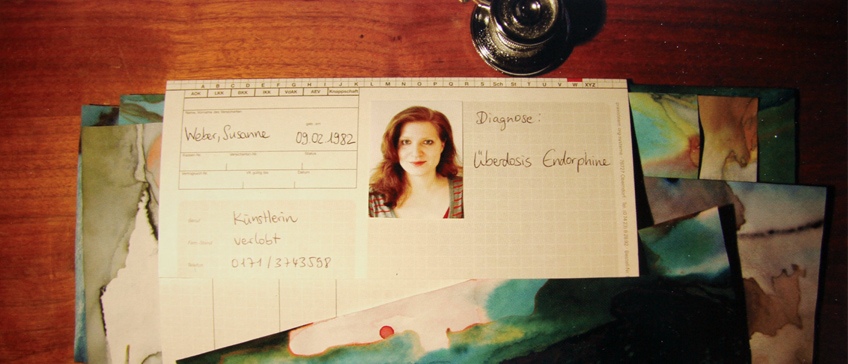 A B C D E F G H I J K L M N O P Q R S Sch St T U V W XYZ
AOK LKK BKK IKK VdAK AEV Knappschaft
Weber, Susanne 09.02.1982
Diagnose:
Überdosis Endorphine
Künstlerin
verlobt
0171/3743598